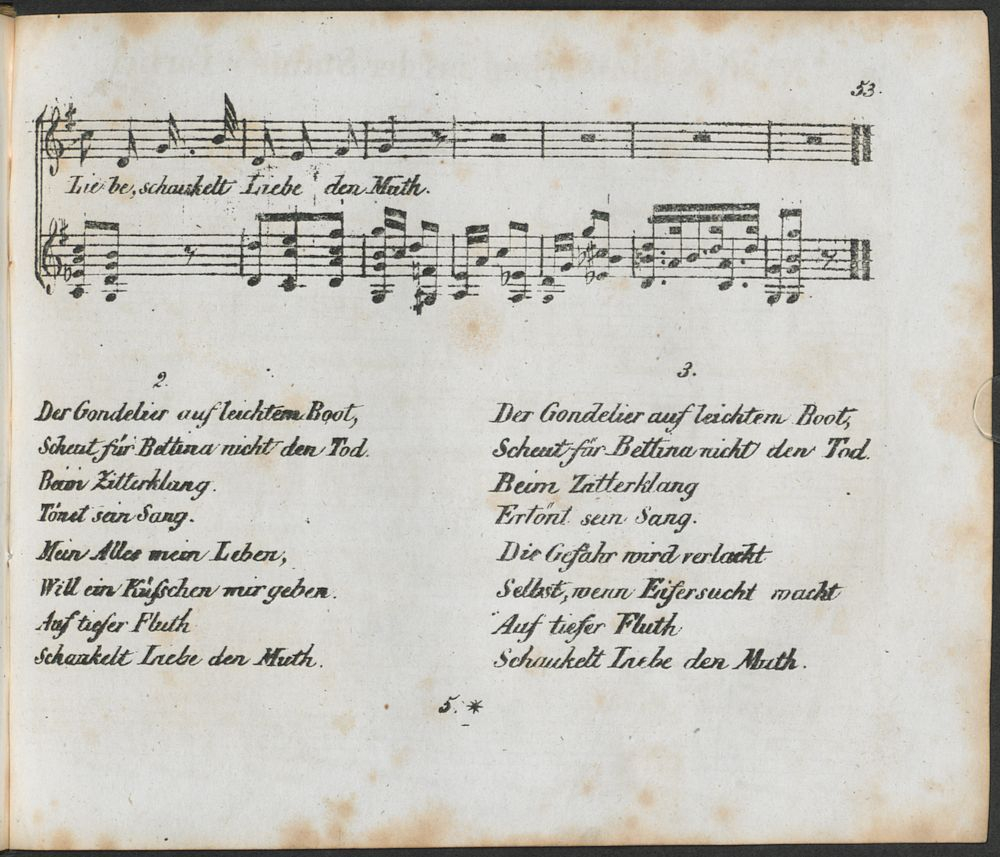 53.
Liebe, schaukelt Liebe den Muth.
2.
Der Gondelier auf leichtem Boot,
Scheut für Bettina nicht den Tod.
Beim Zitterklang.
Tönet sein Sang.
Mein Alles mein Leben,
Will ein Küſschen mir geben.
Auf tiefer Fluth
Schaukelt Liebe den Muth.
3.
Der Gondelier auf leichtem Boot,
Scheut für Bettina nicht den Tod.
Beim Zitterklang
Ertönt sein Sang.
Die Gefahr wird verlacht
Selbst, wenn Eifersucht wacht
Auf tiefer Fluth
Schaukelt Liebe den Muth.
5. *